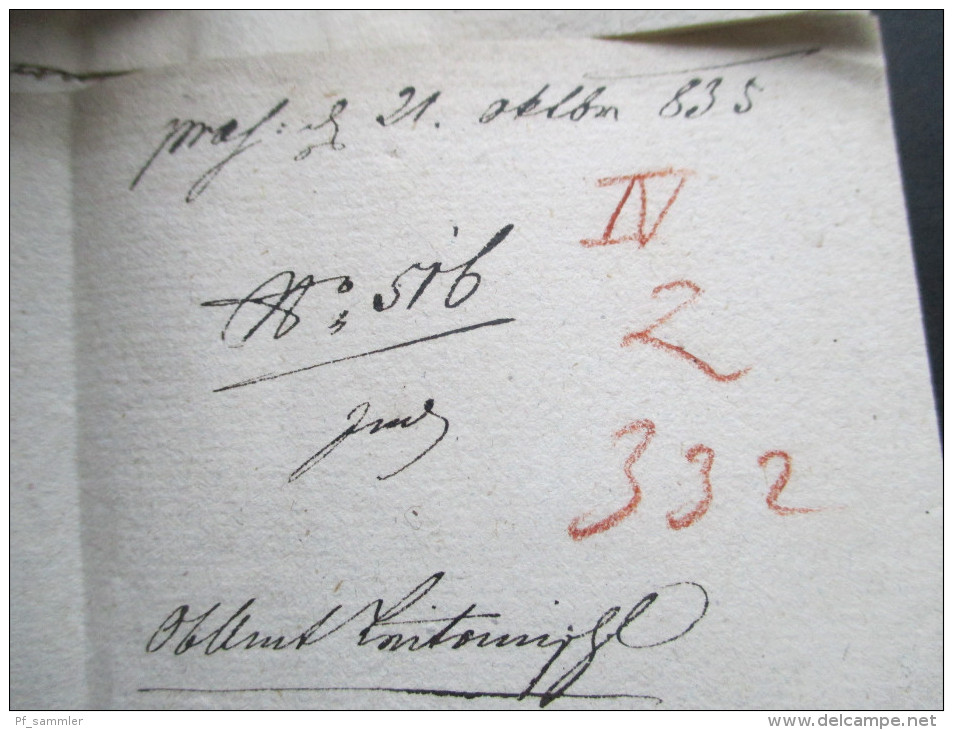 praes: den 21. Oktbr 835
IV
No: 516
2
332
ObAmt Leitomischl
Pf_sammler
www.delcampe.net